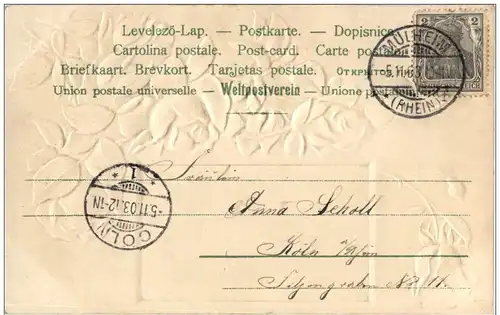 Levelezö-Lap. — Postkarte. — Dopisnice.
Cartolina postale. Post-card. Carte postale.
Briefkaart. Brevkort. Tarjetas postale. ОТКРИТОЕ
Union postale universelle — Weltpostverein — Unione postale
2 2
MÜLHEIM
5.11.03
* (RHEIN) *
REICH
Fräulein
Anna Scholl
Köln a/Rhein
No 11.
* 1 *
-5.11.03.12-1N
CÖLN